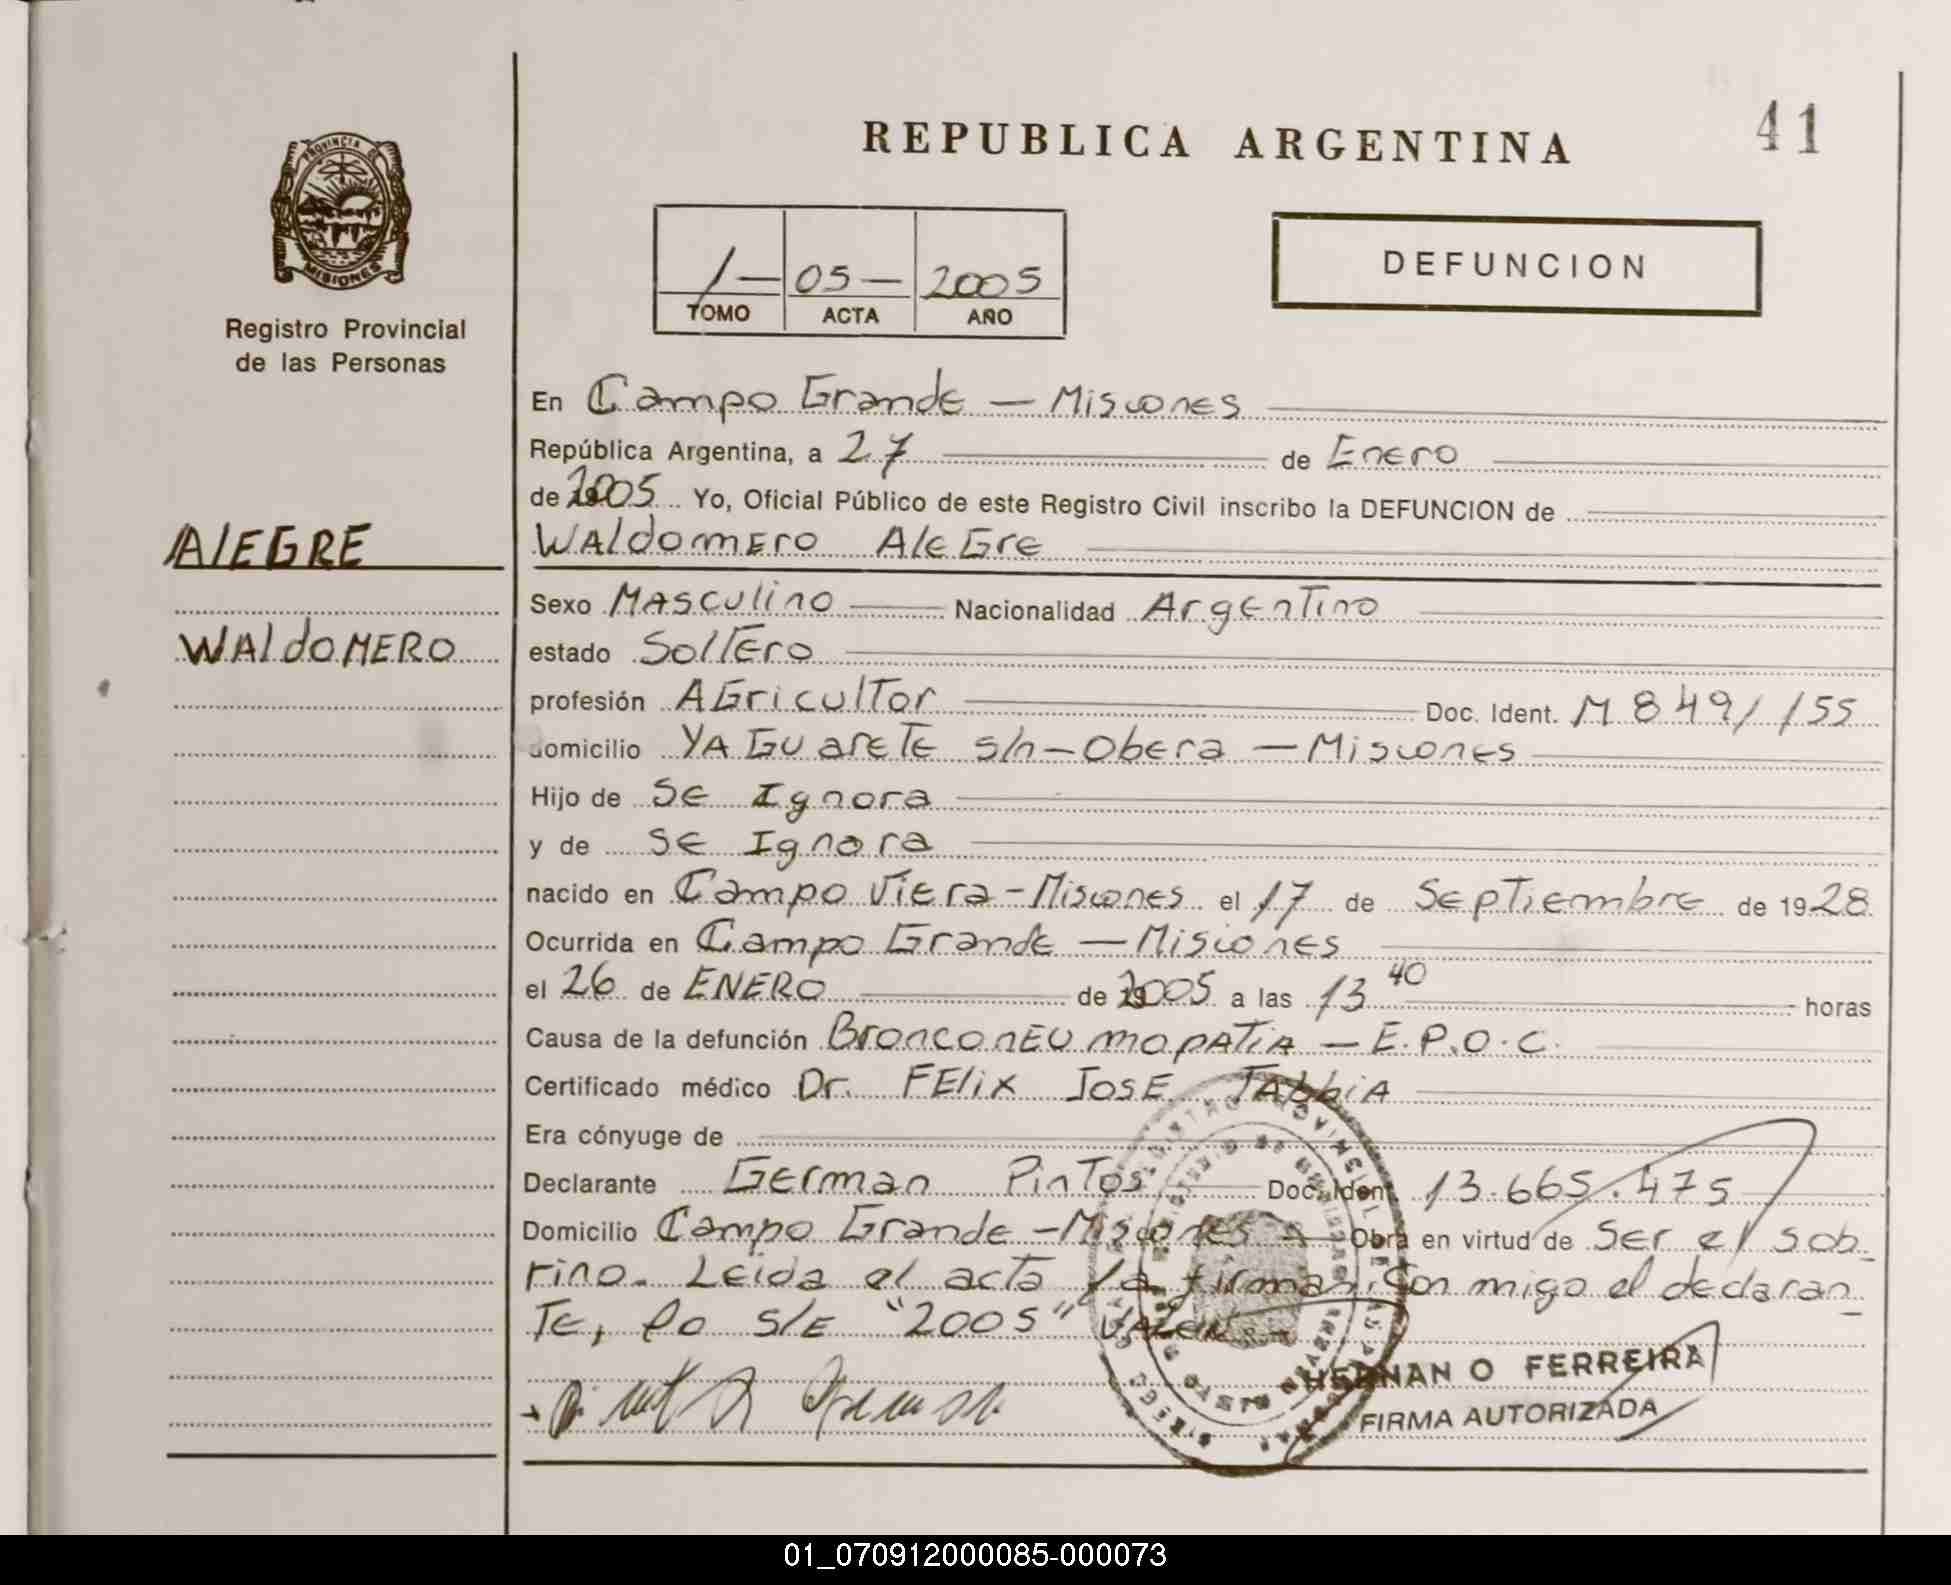 REPUBLICA ARGENTINA
41
PROVINCIA DE
MISIONES
Registro Provincial
de las Personas
1 — 05 — 2005
TOMO ACTA AÑO
DEFUNCION
ALEGRE
WALDOMERO
En Campo Grande — Misiones
República Argentina, a 27 de Enero
de 2005 Yo, Oficial Público de este Registro Civil inscribo la DEFUNCION de
WALdomERO AleGre
Sexo MAsculino Nacionalidad ArgenTino
estado SolTEro
profesión AGriculTor Doc. Ident. M 8491155
domicilio YAGUareTE s/n - Obera — Misiones
Hijo de SE Ignora
y de SE Ignora
nacido en Campo Viera - Misiones el 17 de SepTiembre de 1928
Ocurrida en Campo Grande — Misiones
el 26 de ENERO de 2005 a las 13 40 horas
Causa de la defunción BronconEUmopATiA — E.P.O.C.
Certificado médico Dr. FElix JosE TAbbiA
Era cónyuge de
Declarante German PinTos Doc. Ident. 13.665.475
Domicilio Campo Grande - Misiones Obra en virtud de Ser el sob-
rino. Leida el acta la firman Con migo el declaran-
TE, lo s/E "2005" VALEN.-
HERNAN O FERREIRA
FIRMA AUTORIZADA
01_070912000085-000073